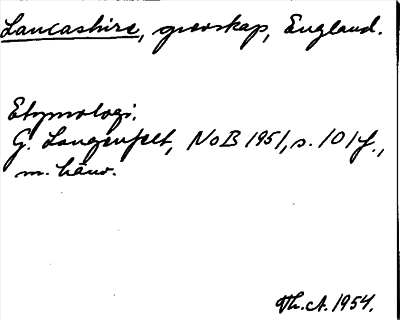 Lancashire, grevskap, England.
Etymologi.
G. Langenfelt, NoB 1951, s. 101f.,
m. hänv.
Th.A. 1954.